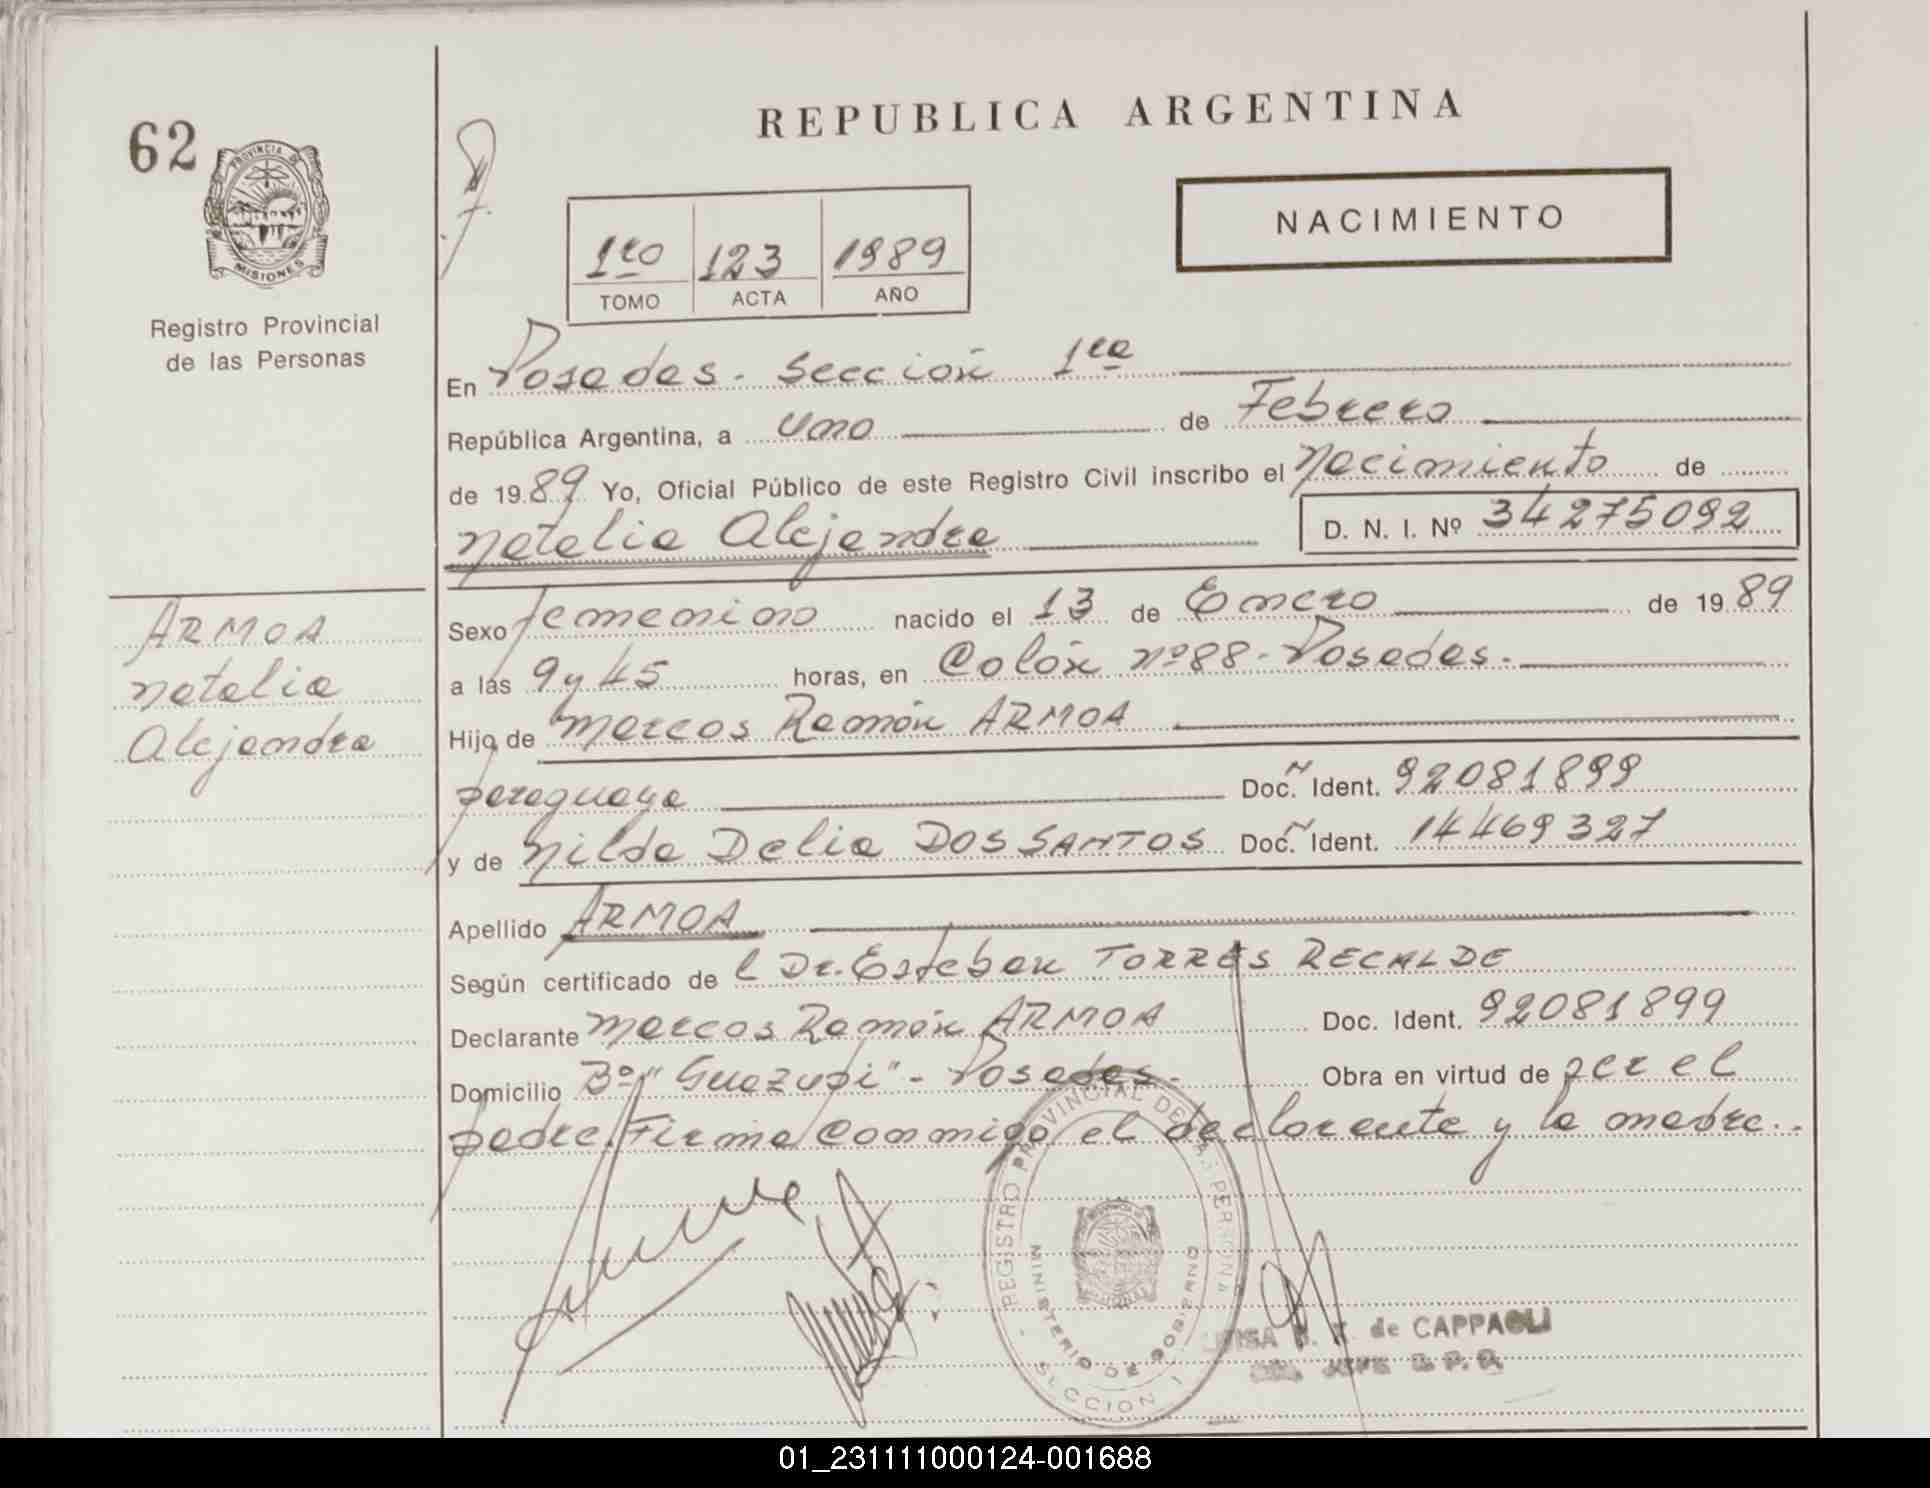 REPUBLICA ARGENTINA
62
PROVINCIA DE
MISIONES
Registro Provincial
de las Personas
NACIMIENTO
1ro 123 1989
TOMO ACTA AÑO
En Posadas. Sección 1ra
República Argentina, a Uno de Febrero
de 1989 Yo, Oficial Público de este Registro Civil inscribo el Nacimiento de
Natalia Alejandra D. N. I. Nº 34275092
ARMOA
Natalia
Alejandra
Sexo femenino nacido el 13 de Enero de 1989
a las 9 y 45 horas, en Colón nº 88 - Posadas.
Hijo de Marcos Ramón ARMOA
paraguaya Doc. Ident. 92081899
y de Nilda Delia DOS SANTOS Doc. Ident. 14469327
Apellido ARMOA
Según certificado de l Dr. Esteban TORRES RECALDE
Declarante Marcos Ramón ARMOA Doc. Ident. 92081899
Domicilio Bº "Guazupi" - Posadas. Obra en virtud de ser el
padre. Firma conmigo el declarante y la madre.
REGISTRO PROVINCIAL DE LAS PERSONAS
MINISTERIO DE GOBIERNO
SECCION 1
de CAPPAOLI
JEFE
01_231111000124-001688